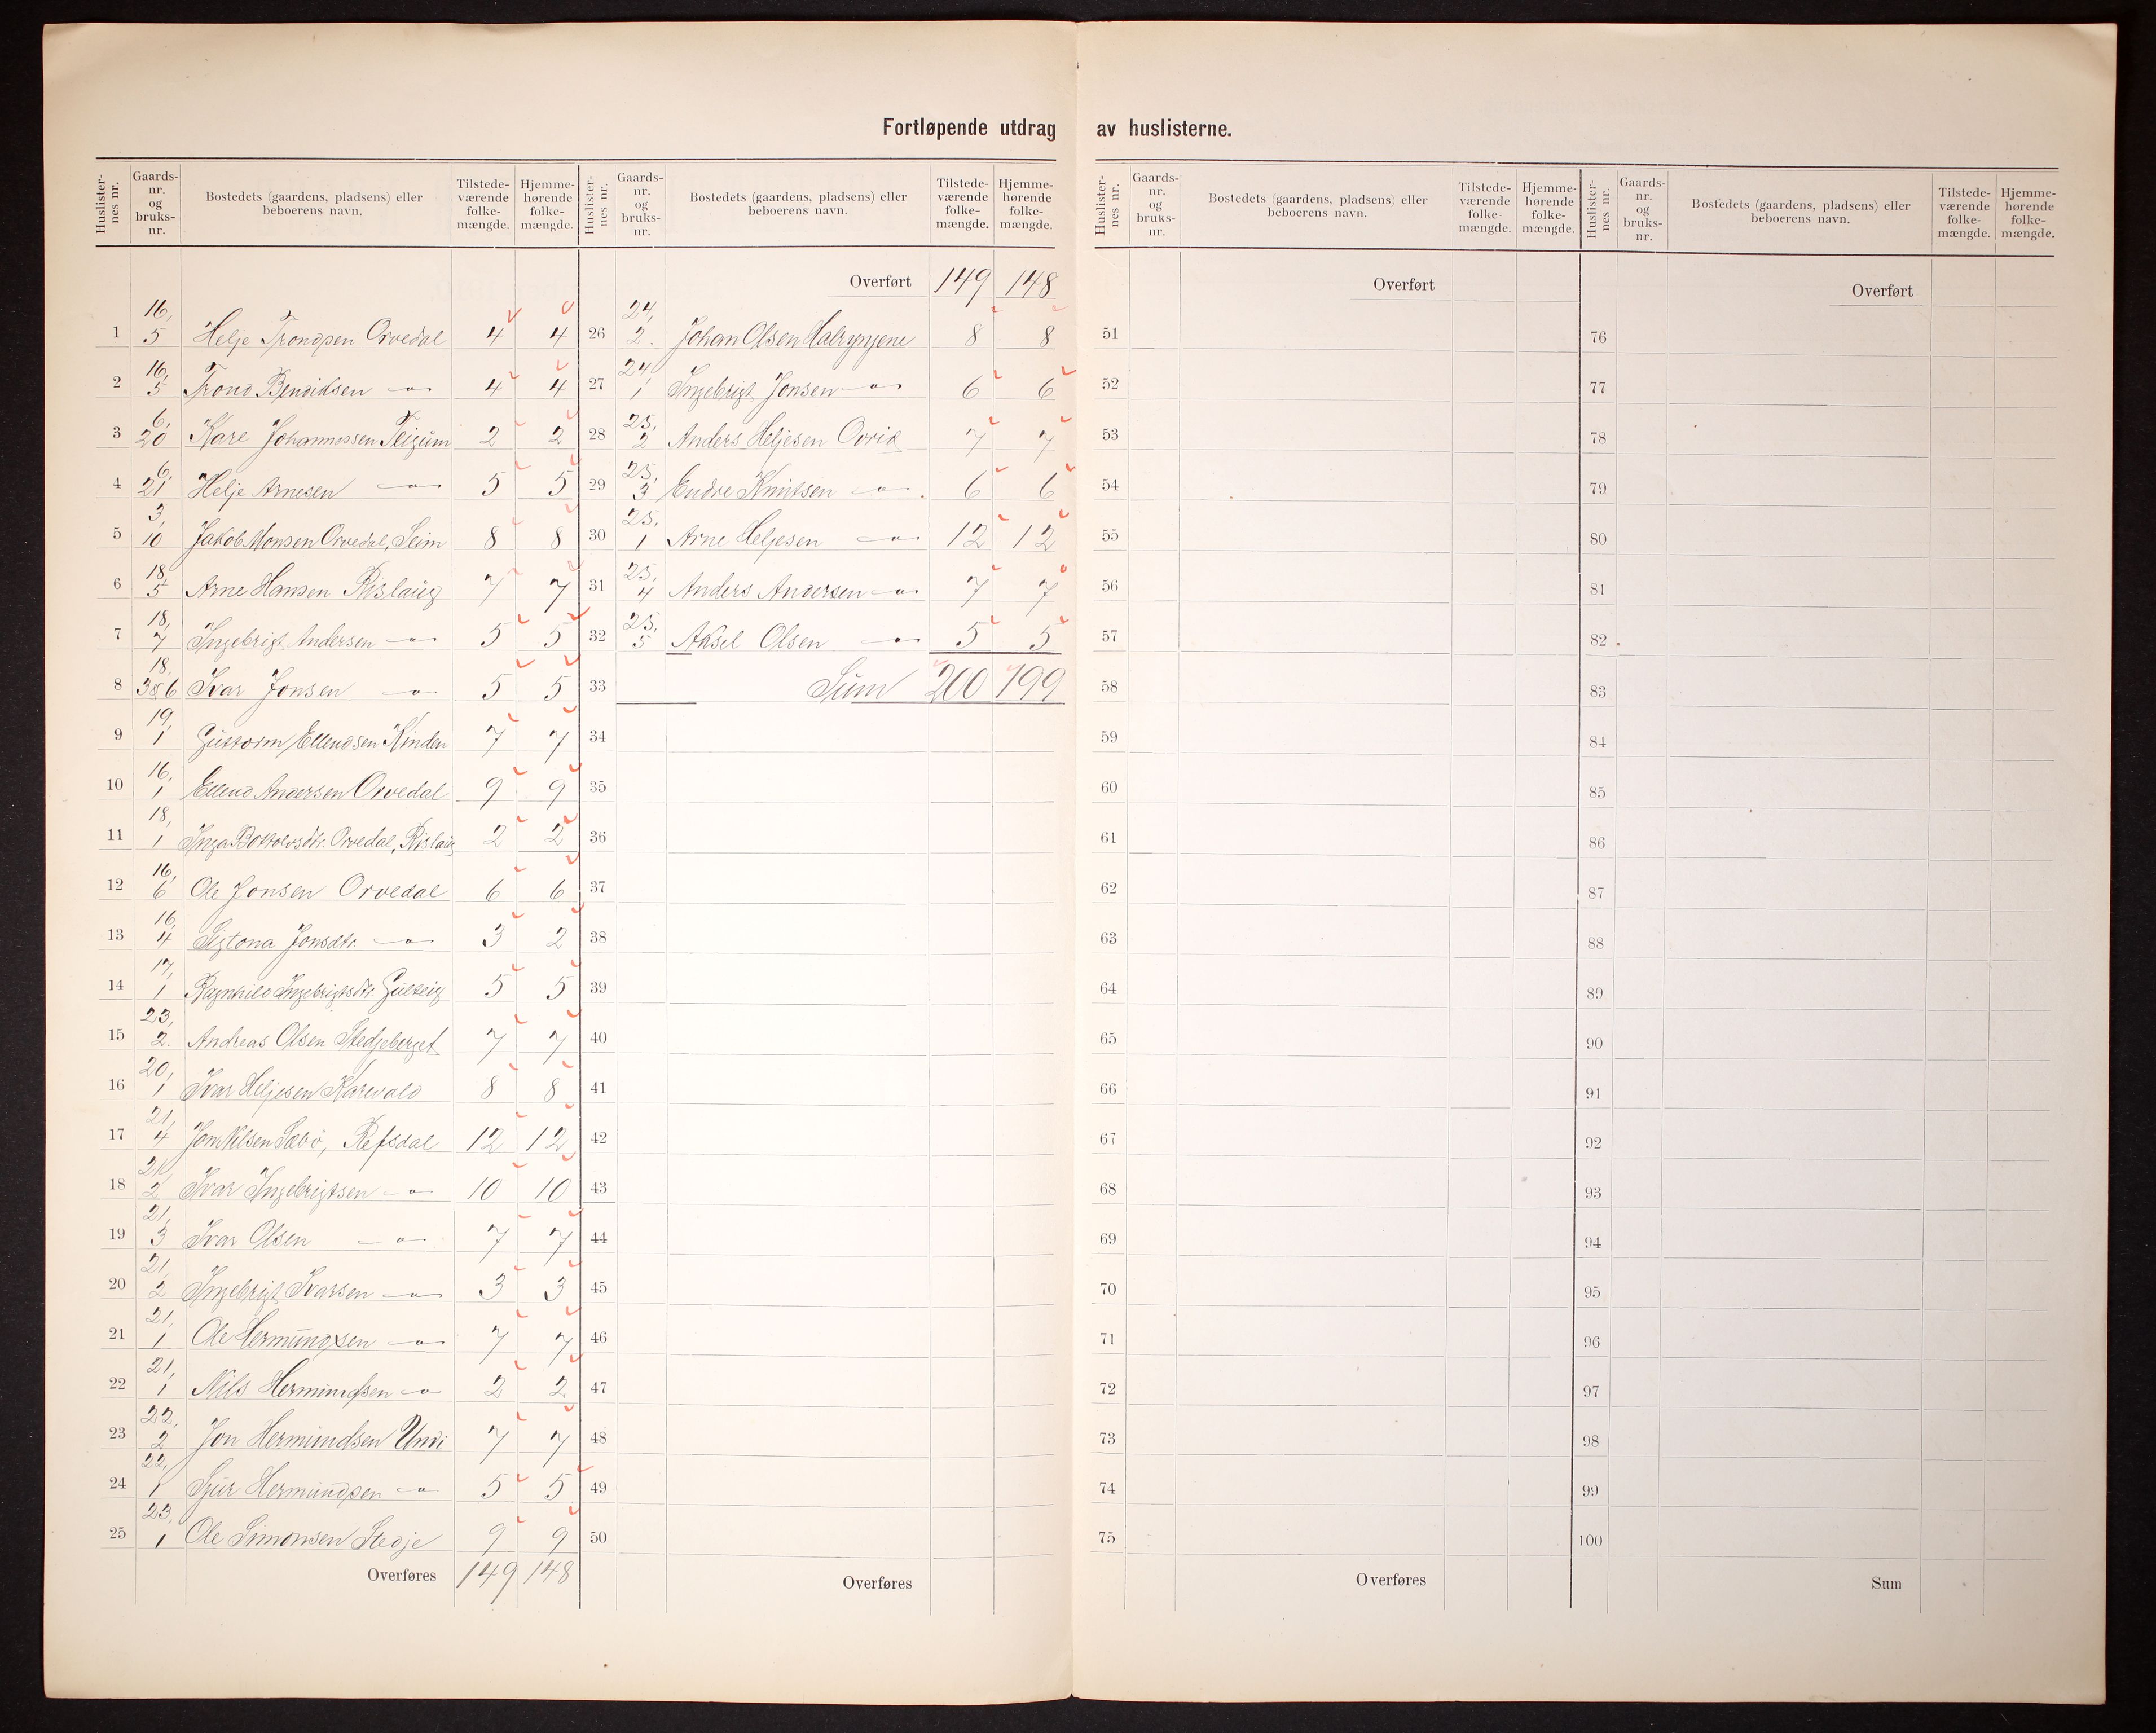 Fortløpende utdrag av huslisterne.
Huslisternes nr. Gaards-nr. og bruks-nr. Bostedets (gaardens, pladsens) eller beboerens navn. Tilstedeværende folkemængde. Hjemmehørende folkemængde.
1 16, 5 Helje Trondsen Orvedal 4 4
2 16, 5 Trond Bendiksen —"— 4 4
3 6, 20 Kare Johannessen Teigum 2 2
4 6, 21 Helje Arnesen —"— 5 5
5 3, 10 Jakob Monsen Orvedal, Seim 8 8
6 18, 5 Arne Hansen Rislaug 7 7
7 18, 7 Ingebrigt Andersen —"— 5 5
8 18, 3&6 Ivar Jonsen —"— 5 5
9 19, 1 Guttorm Ellendsen Kinden 7 7
10 16, 1 Ellend Andersen Orvedal 9 9
11 18, 1 Inga Botholvsdtr. Orvedal, Rislaug 2 2
12 16, 6 Ole Jonsen Orvedal 6 6
13 16, 4 Sigtona Jonsdtr. —"— 3 2
14 17, 1 Ragnhild Ingebrigtsdtr. Gulteig 5 5
15 23, 2. Andreas Olsen Stedjeberget 7 7
16 20, 1 Ivar Heljesen Karevold 8 8
17 21, 4 Jon Nilsen Sæbø, Refsdal 12 12
18 21, 2 Ivar Ingebrigtsen —"— 10 10
19 21, 3 Ivar Olsen —"— 7 7
20 21, 2 Ingebrigt Ivarsen —"— 3 3
21 21, 1 Ole Hermundsen —"— 7 7
22 21, 1 Nils Hermundsen —"— 2 2
23 22, 2 Jon Hermundsen Undi 7 7
24 22, 1 Sjur Hermundsen —"— 5 5
25 23, 1 Ole Simonsen Stedje 9 9
Overføres 149 148
Huslisternes nr. Gaards-nr. og bruks-nr. Bostedets (gaardens, pladsens) eller beboerens navn. Tilstedeværende folkemængde. Hjemmehørende folkemængde.
Overført 149 148
26 24, 2. Johan Olsen Halrynjene 8 8
27 24, 1 Ingebrigt Jonsen —"— 6 6
28 25, 2 Anders Heljesen Ovrid 7 7
29 25, 3 Endre Knutsen —"—. 6 6
30 25, 1 Arne Heljesen —"— 12 12
31 25, 4 Anders Andersen —"— 7 7
32 25, 5 Aksel Olsen —"— 5 5
33 Sum 200 199
34
35
36
37
38
39
40
41
42
43
44
45
46
47
48
49
50
Overføres
Huslisternes nr. Gaards-nr. og bruks-nr. Bostedets (gaardens, pladsens) eller beboerens navn. Tilstedeværende folkemængde. Hjemmehørende folkemængde.
Overført
51
52
53
54
55
56
57
58
59
60
61
62
63
64
65
66
67
68
69
70
71
72
73
74
75
Overføres
Huslisternes nr. Gaards-nr. og bruks-nr. Bostedets (gaardens, pladsens) eller beboerens navn. Tilstedeværende folkemængde. Hjemmehørende folkemængde.
Overført
76
77
78
79
80
81
82
83
84
85
86
87
88
89
90
91
92
93
94
95
96
97
98
99
100
Sum